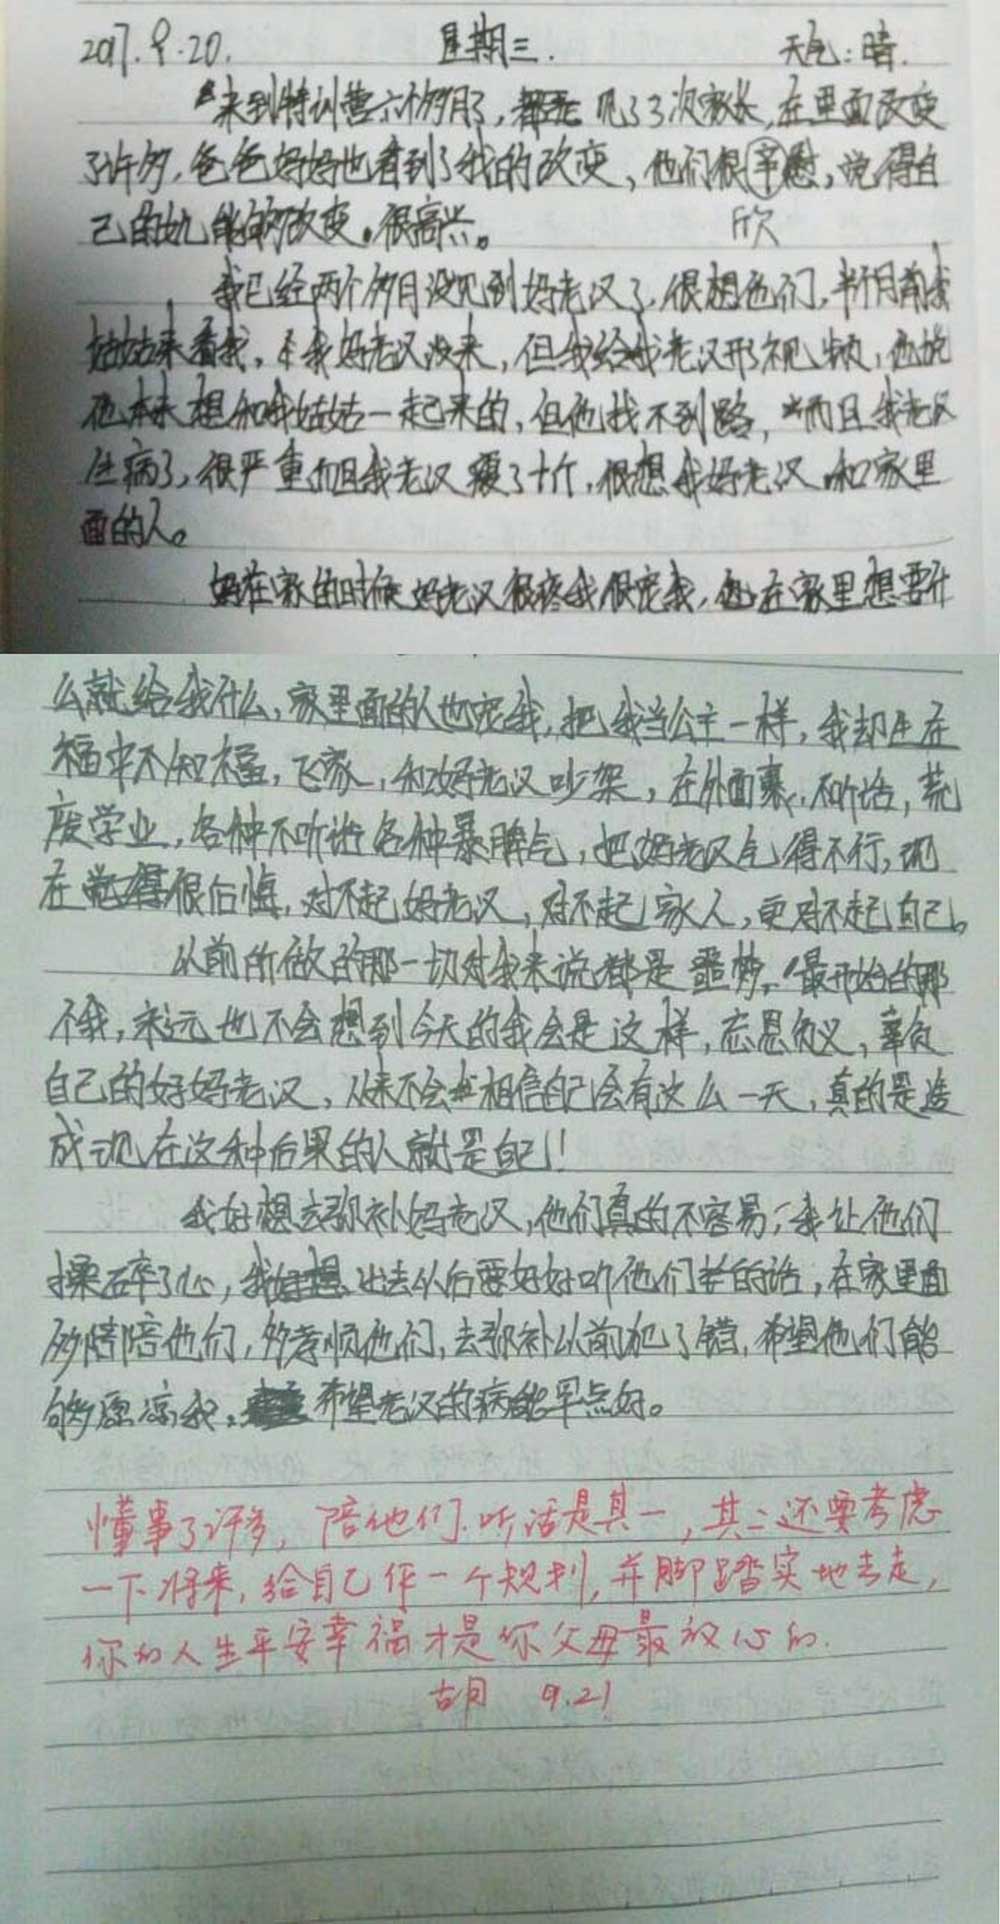 2017.9.20. 星期三. 天气:晴.
来到特训营六个多月了,见了3次家长,在里面改变
了许多,爸爸妈妈也看到了我的改变,他们很辛慰,觉得自
己的女儿能够改变。很高兴。 欣
我已经两个多月没见到妈老汉了,很想他们,半个月前我
姑姑来看我,我妈老汉没来,但我给我老汉开了视频,他说
他本来想和我姑姑一起来的,但他找不到路,而且我老汉
生病了,很严重而且我老汉瘦了十斤,很想我妈老汉和家里
面的人。
在家的时候妈老汉很疼我很宠我,在家里想要什
么就给我什么,家里面的人也宠我,把我当公主一样,我却生在
福中不知福,飞家,和妈老汉吵架,在外面裹,不听话,荒
废学业,各种不听话各种暴脾气,把妈老汉气得不行,现
在觉得很后悔,对不起妈老汉,对不起家人,更对不起自己。
从前所做的那一切对我来说都是噩梦,最开始的那
个我,永远也不会想到今天的我会是这样,忘恩负义,辜负
自己的好妈老汉,从来不会相信自己会有这么一天,真的是造
成现在这种后果的人就是自己!
我好想去弥补妈老汉,他们真的不容易,我让他们
操碎了心,我好想出去以后要好好听他们的话,在家里面
多陪陪他们,多孝顺他们,去弥补以前犯了错,希望他们能
够愿凉我,希望老汉的病能早点好。
懂事了许多,陪他们.听话是其一,其二还要考虑
一下将来,给自己作一个规划,并脚踏实地去走,
你的人生平安幸福才是你父母最放心的.
胡 9.21